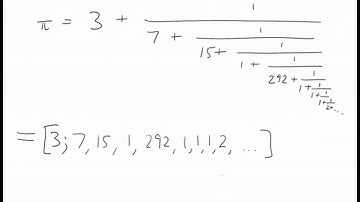 π = 3 + 1
7 + 1
15 + 1
1 + 1
292 + 1
1 + 1
1 + 1
1 + 1
2+...
= [3; 7, 15, 1, 292, 1, 1, 1, 2, ...]